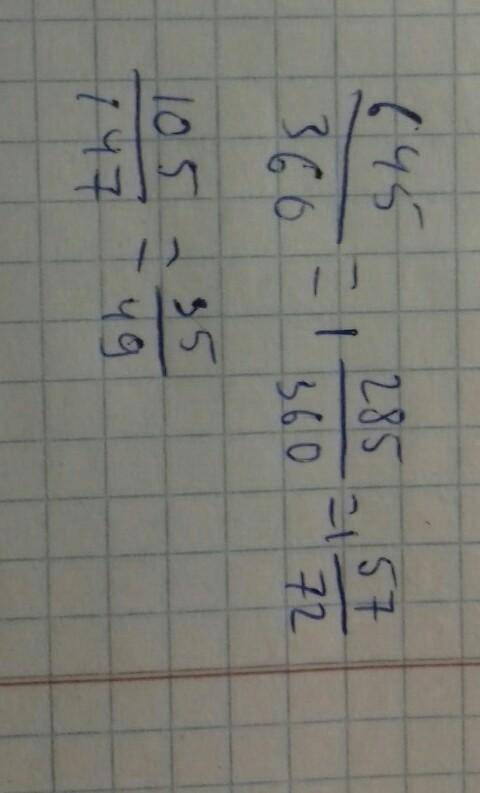 645/360 = 1 285/360 = 1 57/72
105/147 = 35/49